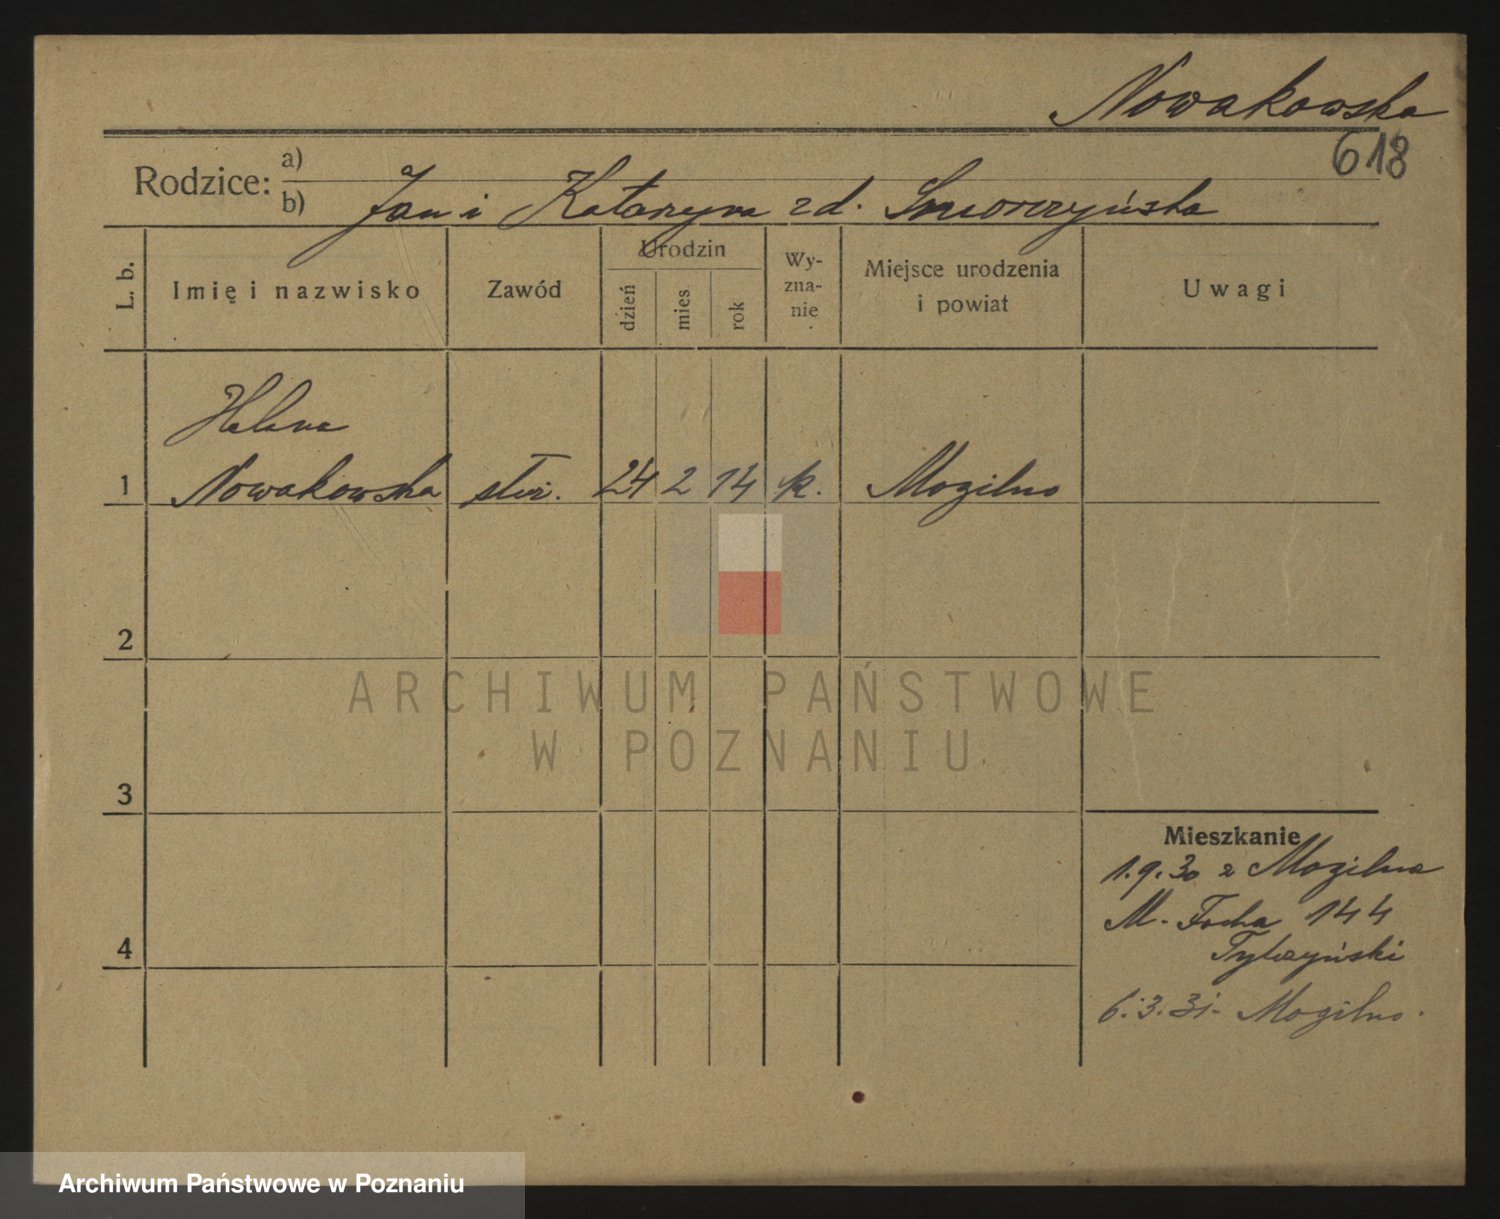 Nowakowska
618
Rodzice: a)
b) Jan i Katarzyna z d. Smorczyńska
L. b.
Imię i nazwisko
Zawód
Urodzin
dzień
mies
rok
Wy-
zna-
nie
Miejsce urodzenia
i powiat
Uwagi
Helena
1 Nowakowska służ. 24 2 14 k. Mogilno
2
ARCHIWUM PAŃSTWOWE
W POZNANIU
3
Mieszkanie
1.9.30 z Mogilna
M. Focha 144
4
6.3.31. Mogilno.
Archiwum Państwowe w Poznaniu